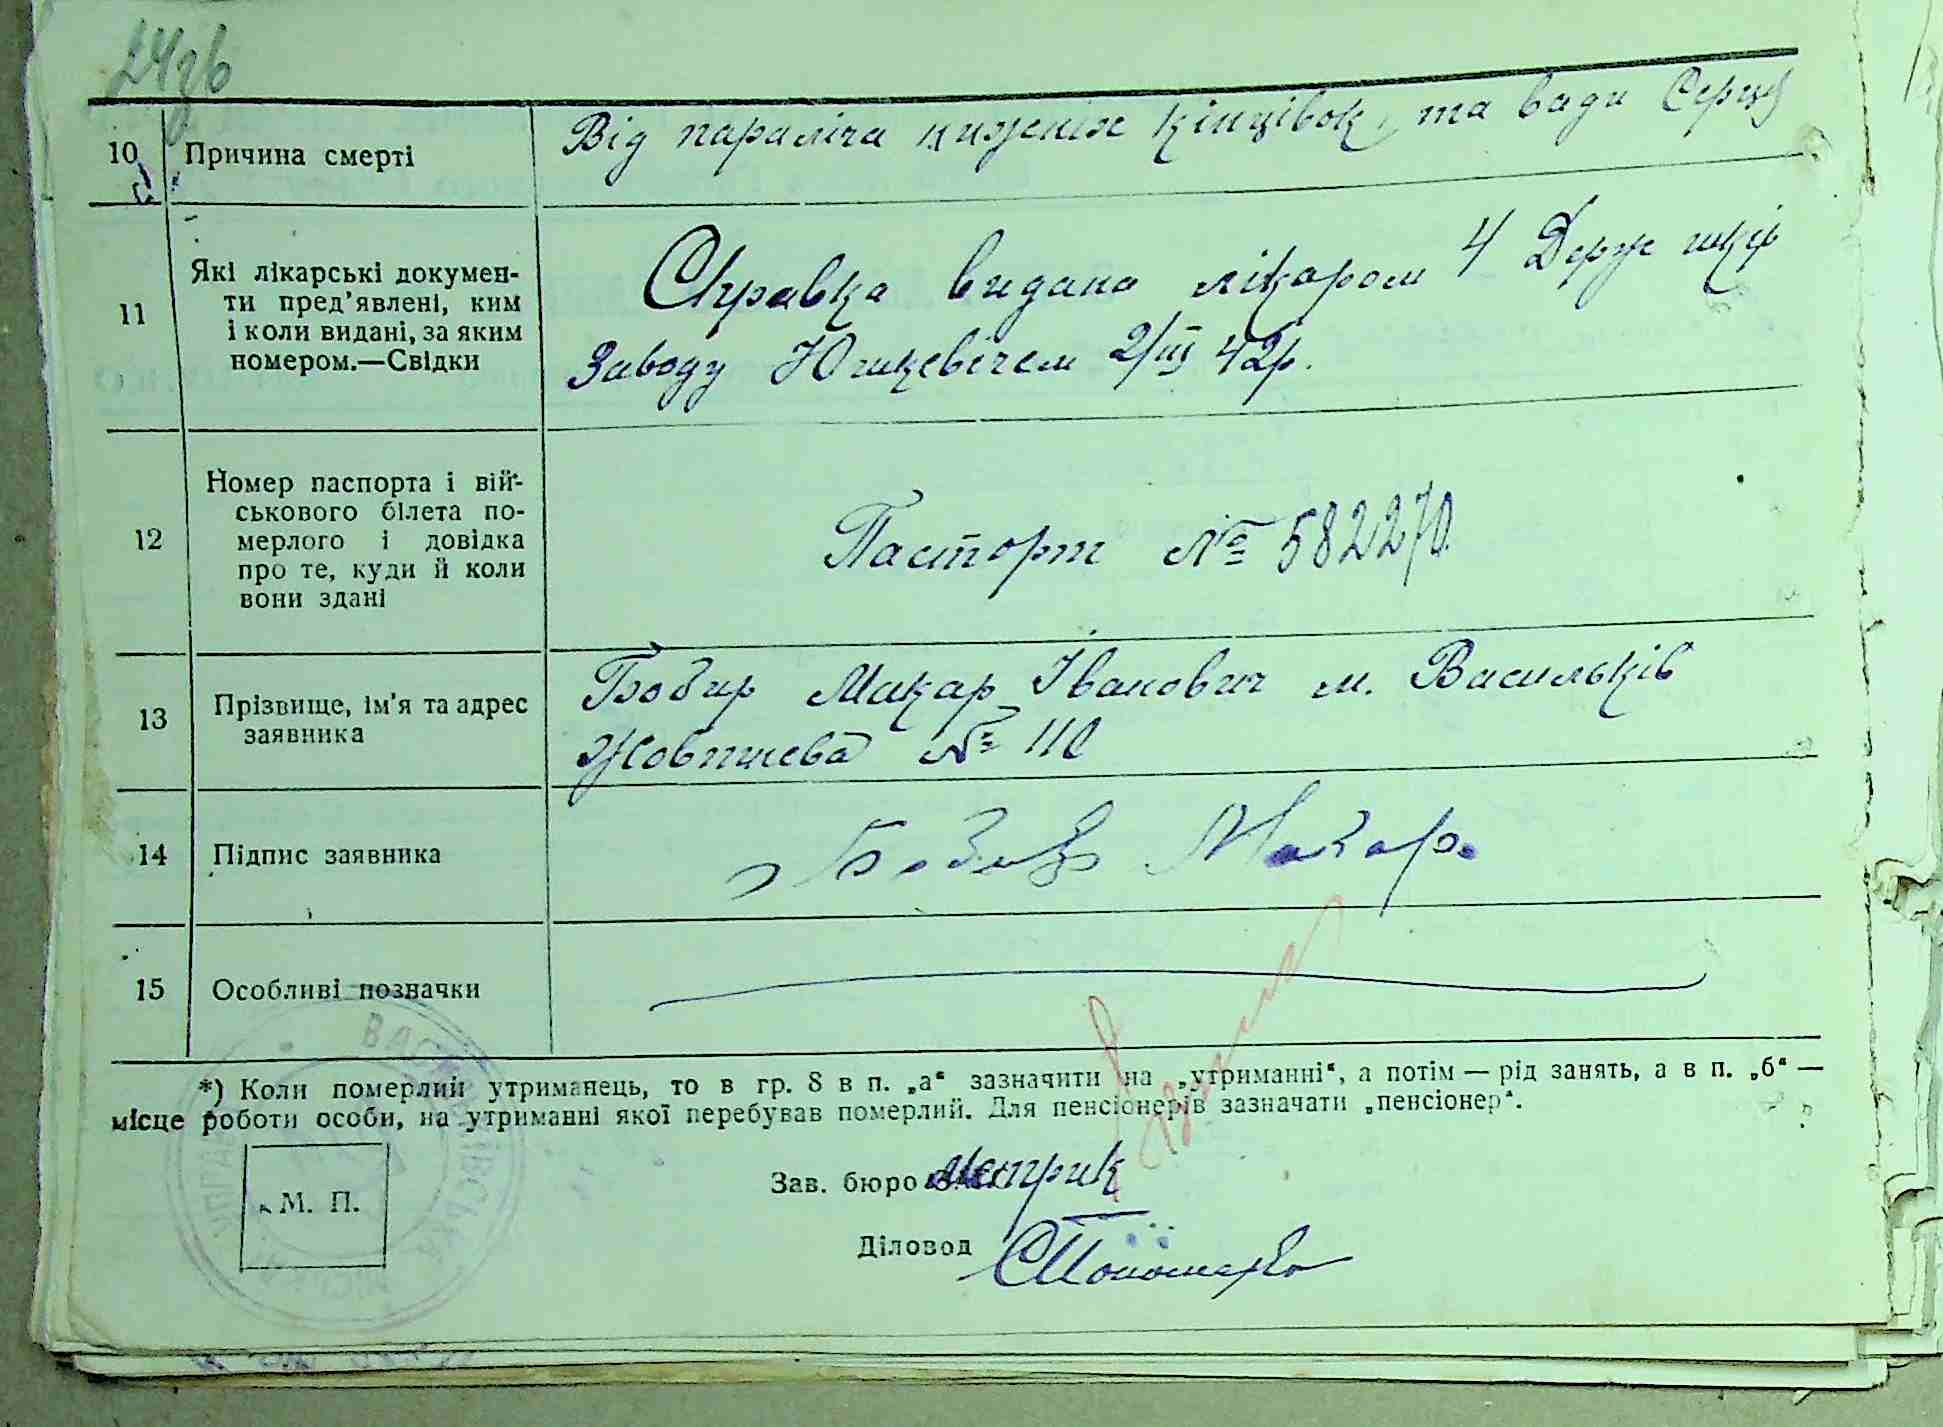 24зв
10 Причина смерті Від параліча нижніх кінцівок, та вади Серця
11 Які лікарські докумен-
ти пред’явлені, ким
і коли видані, за яким
номером.—Свідки
Справка видана лікаром 4 Держ шкір
Заводу 2/III 42р.
12 Номер паспорта і вій-
ськового білета по-
мерлого і довідка
про те, куди й коли
вони здані
Паспорт № 582270
13 Прізвище, ім’я та адрес
заявника
Бобир Макар Іванович м. Васильків
Жовтнева № 110
14 Підпис заявника Бобир Макар.
15 Особливі позначки
*) Коли померлий утриманець, то в гр. 8 в п. „а“ зазначити на „утриманні“, а потім — рід занять, а в п. „б“ —
місце роботи особи, на утриманні якої перебував померлий. Для пенсіонерів зазначати „пенсіонер“.
М. П.
Зав. бюро метрик
Діловод
ВАСИЛЬКІВСЬКА МІСЬКА УПРАВА